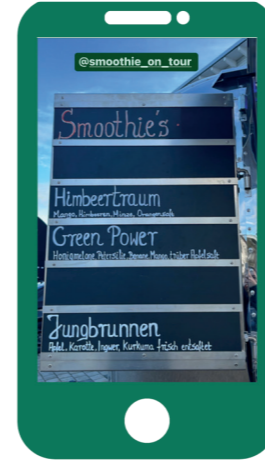 @smoothie_on_tour
Smoothie's
Himbeertraum
Mango, Himbeeren, Minze, Orangensaft
Green Power
Honigmelone, Petersilie, Banane, Mango, trüber Apfelsaft
Jungbrunnen
Apfel, Karotte, Ingwer, Kurkuma frisch entsaftet